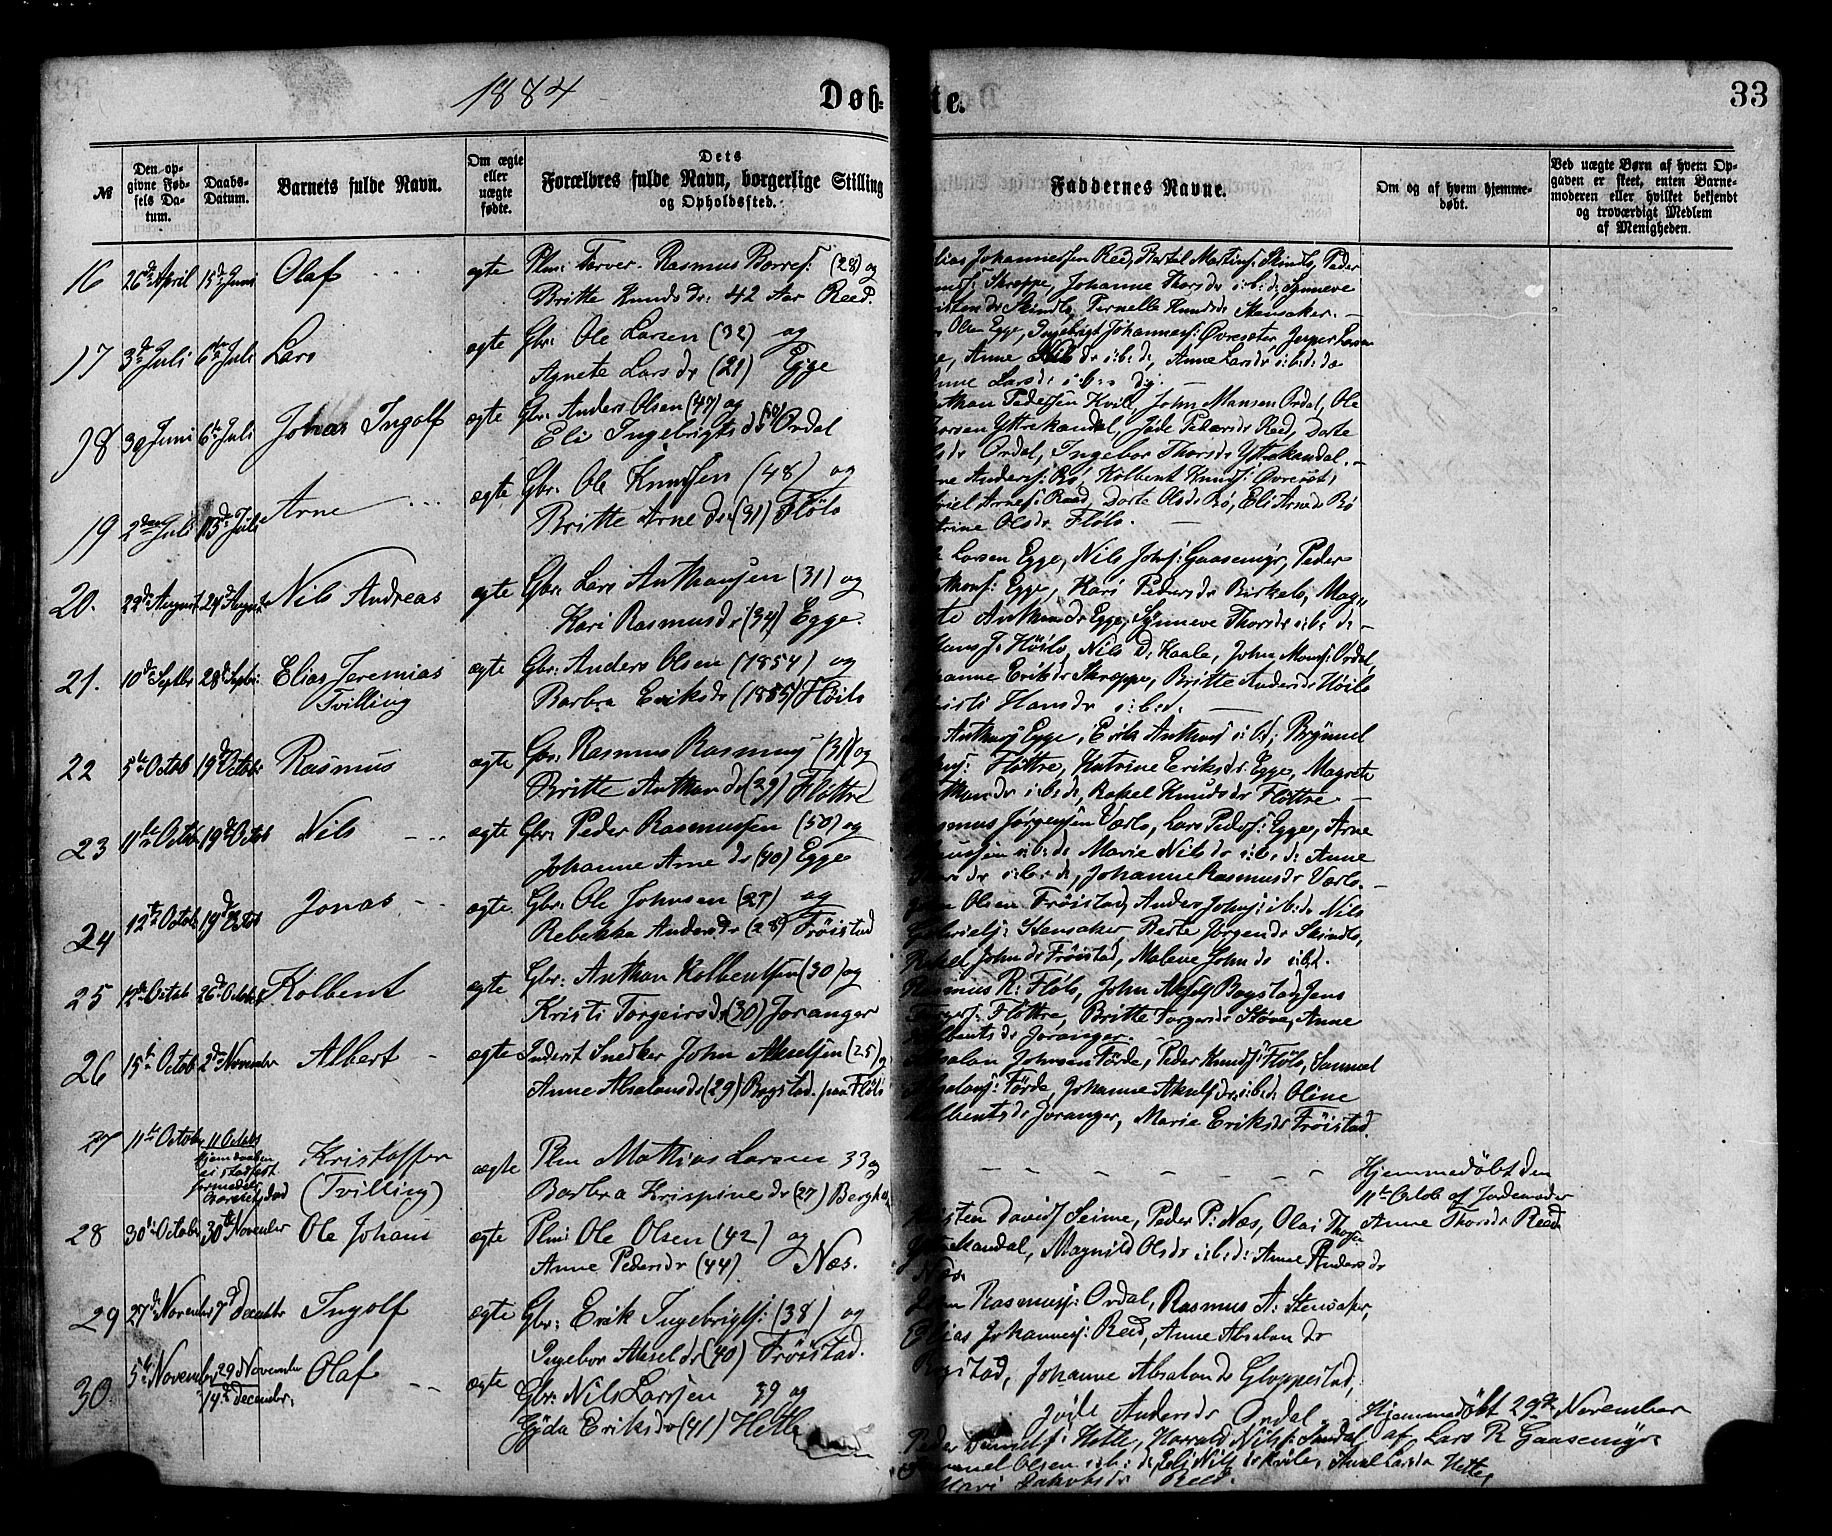 1884
Døb-
te.
33
№
Den op-
givne Fød-
sels Da-
tum.
Daabs-
Datum.
Barnets fulde Navn.
Om ægte
eller
uægte
fødte.
Dets
Forældres fulde Navn, borgerlige Stilling
og Opholdssted.
Faddernes Navne.
Om og af hvem hjemme-
døbt.
Ved uægte Børn af hvem Op-
gaven er skeet, enten Barne-
moderen eller hvilket bekjendt
og troværdigt Medlem
af Menigheden.
16 26de April 15de Juni Olaf ægte Plm: Farver. Rasmus Borres: (28) og
Britte Knuds dr: 42 Aar Reed.
Johannessen Reed, Bertel Martins: Skindlo, Peder
Skroppe, Johanne Thors dr i:b:d: Synneve
dr Skindlo, Pernelle Knuds dr Stensaker. —
17 3de Juli 6te Juli Lars ægte Gbr: Ole Larsen (32) og
Agnete Lars dr (21) Egge
Olsen Egge, Ingebrigt Johanness: Øvreseter Jesper Larsen
Anne Nils dr i:b:d:, Anne Lars dr i:b:d:
Lars d: i:b: d:
18 30 Juni 6te Juli Johan Ingolf ægte Gbr: Anders Olsen (47) og
Eli Ingebrigts dr Ordal
Pedersen Kvile, John Mansen Ordal, Ole
Yttrekandal, Jøde Peders dr Reed, Dorte
dr Ordal, Ingebor Thors dr Yttrekandal. —
19 2den Juli 13de Juli Arne ægte Gbr. Ole Knudsen (48) og
Britte Arne dr (31) Fløle
Anders: Bø, Kolbent Knuds: Øvreset,
Arnes: Reed, Dorte Ols dr Bø, Eli Arne dr Bø
Ols dr Fløle. —
20. 22de August 24de August Nils Andreas ægte Gbr: Lars Anthonsen (31) og
Kari Rasmus dr (34) Egge.
Larsen Egge, Nils Johns: Gaasemyr, Peder
Egge, Kari Peders dr Birkelo, Mag-
Anthon dr Egge, Synneve Thors dr i:b: d: —
21. 10de Septbr 28de Septbr: Elias Jeremias
Tvilling ægte Gbr: Anders Olsen (1854) og
Barbra Eriks dr (1855) Fløilo
Høilo, Nils D: Kaale, John Mons: Ordal,
Eriks dr Skroppe, Britte Anders dr Høilo
Hans dr i:b:d: —
22 5te Octob 19de Octob: Rasmus ægte Gbr: Rasmus Rasmus: (31) og
Britte Anthon dr (29) Fløttre
Anthons: Egge, Erik Anthons: i:b:d: Brynnel
Fløttre, Katrine Eriks dr Egge, Magrete
dr i:b:d:, Rakel Knuds dr Fløttre. —
23 11te Octob 19de Octob Nils ægte Gbr: Peder Rasmussen (50) og
Johanne Arne dr (40) Egge
Jørgensen Varlo, Lars Peders: Egge, Arne
i:b:d: Marie Nils dr i:b: d: Anne
dr i:b:d:, Johanne Rasmus dr Varlo. —
24 12te Octob 19de Octob Jonas ægte. Gbr: Ole Johnsen (27) og
Rebekka Anders dr (28) Frøistad
Olsen Frøistad, Anders Johns: i:b:d: Nils
Stensaker, Berte Jørgen dr Skindlo,
Rakel John dr Frøistad, Malene John dr i:b:d.
25 12te Octob 26de Octob Kolbent ægte Gbr: Anthon Kolbentsen (30) og
Kristi Torgeirs dr (30) Joranger
Rasmus R: Fløle, John Aksels: Bogstad, Jens
Fløttre, Britte Torgers dr Støve, Anne
dr Joranger. —
26 15te Octob 2de November Albert ægte Inderst Snedker John Akselsen (25) og
Anne Absalons dr (29) Bogstad paa Fløle
Johnsen Førde, Peder Knuds: Fløle, Samuel
Førde Johanne Aksels dr i:b:d: Oline
Kolbents dr Joranger, Marie Eriks dr Frøistad.
27 11te Octob 11 Octob
Kristoffer
(Tvilling) ægte Plm Mathias Larsen 33 og
Barbra Krispine dr (27) Bergh
Hjemmedøbt den
11te Octob af Jordemoder
Anne Thors dr Reed
28 30te Octob 30te November Ole Johan ægte Plm: Ole Olsen (42) og
Anne Peders dr (44) Næs.
Davids: Seime, Peder P: Næs, Olai Thors:
Yttrekandal, Magnild Ols dr i:b:d: Anne Anders dr
Næs.
29 27de November 7de December Ingolf ægte Gbr: Erik Ingebrigts: (38) og
Ingebor Aksel dr (40) Frøistad.
Rasmuss: Ordal, Rasmus A: Stensaker,
Elias Johanness: Reed, Anne Absalon dr
Bogstad, Johanne Absalon dr Gloppestad,
Jøde Anders dr Ordal
30 5te November 29 November
14de December. Olaf ægte Gbr: Nils Larssen 39 og
Gyda Eriks dr (41) Hetle
Hjemmedøbt 29de November
af Lars R Gaasemyr
Peder Hetle, Harald Nils: Sandal
Olsen i:b: d:, Eli Nils dr Kvile, Anne Lars dr Hetle
Jakobs dr Reed.